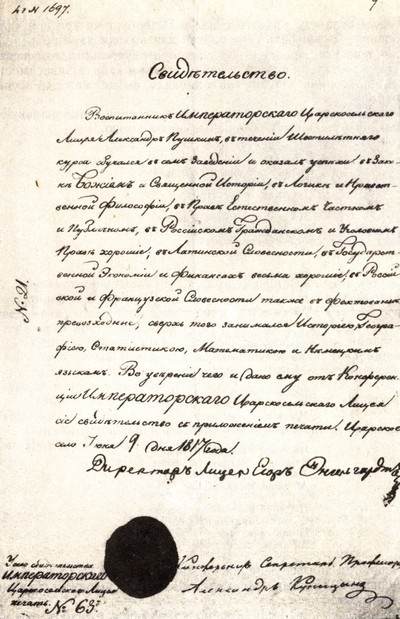 № 1697.
Свидѣтельство.
Воспитанникъ Императорскаго Царскосельскаго
Лицея Александръ Пушкинъ, въ теченіи Шестилѣтняго
курса обучался въ семъ Заведеніи и оказалъ успѣхи: въ Зако-
нѣ Божіемъ и Священной Исторіи, въ Логикѣ и Нравст-
венной Философіи, въ Правѣ Естественномъ Частномъ
и Публичномъ, въ Россійскомъ Гражданскомъ и Уголовномъ
Правѣ хорошіе; въ Латинской Словесности, въ Государст-
венной Экономіи и Финансахъ весьма хорошіе; въ Россій-
ской и Французской Словесности также въ Фехтованіи
превосходные; сверхъ того занимался Исторіею, Геогра-
фіею, Статистикою, Математикою и Нѣмецкимъ
языкомъ. Во увѣреніе чего и дано ему отъ Конферен-
ціи Императорскаго Царскосельскаго Лицея
сіе свидѣтельство съ приложеніемъ печати. Царское
село Іюня 9 дня 1817 года.
Директоръ Лицея Егоръ Энгельгардтъ
№ 21.
У сего свидѣтельства
Императорскаго
Царскосельскаго Лицея
печать. № 63.
Конференцъ Секретарь Профессоръ
Александръ Куницынъ